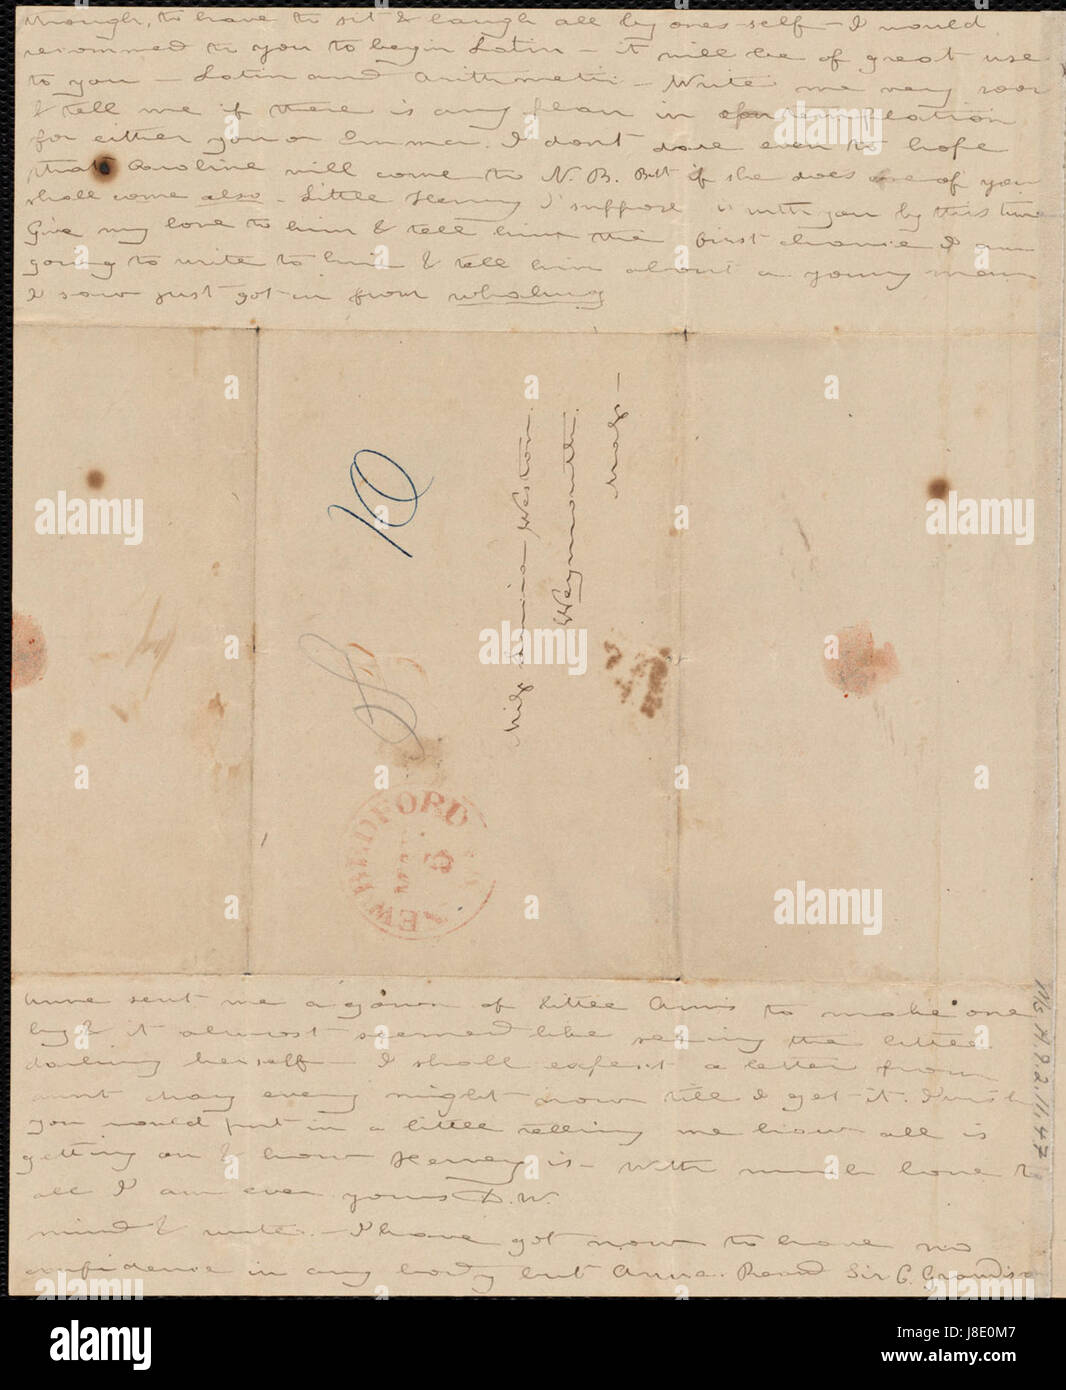 though, to have to sit & laugh all by ones-self - I would
recommed to you to begin Latin - it will be of great use
to you - Latin and Arithmetic - Write me very soon
& tell me if there is any plan in contemplation
for either you or Emma. I don't dare even to hope
that Caroline will come to N. B. But if she does one of you
shall come also. Little Henry I suppose is with you by this time
Give my love to him & tell him the first chance I am
going to write to him & tell him about a young man
I saw just got in from whaling
10
Miss Lucia Weston.
Weymouth.
Mass -
NEW BEDFORD
Anne sent me a gown of little Anns to make one
by & it almost seemed like seeing the little
darling herself - I shall expect a letter from
aunt Mary every night now till I get it. I wish
you would put in a little telling me how all is
getting on & how Hervey is - With much love to
all I am ever yours D.W.
mind & write. - I have got now to have no
confidence in any body but Anne. Read Sir C. Grandison
Ms. A. 9. 2. 11. 47
alamy
a
alamy
Image ID: J8E0M7
www.alamy.com